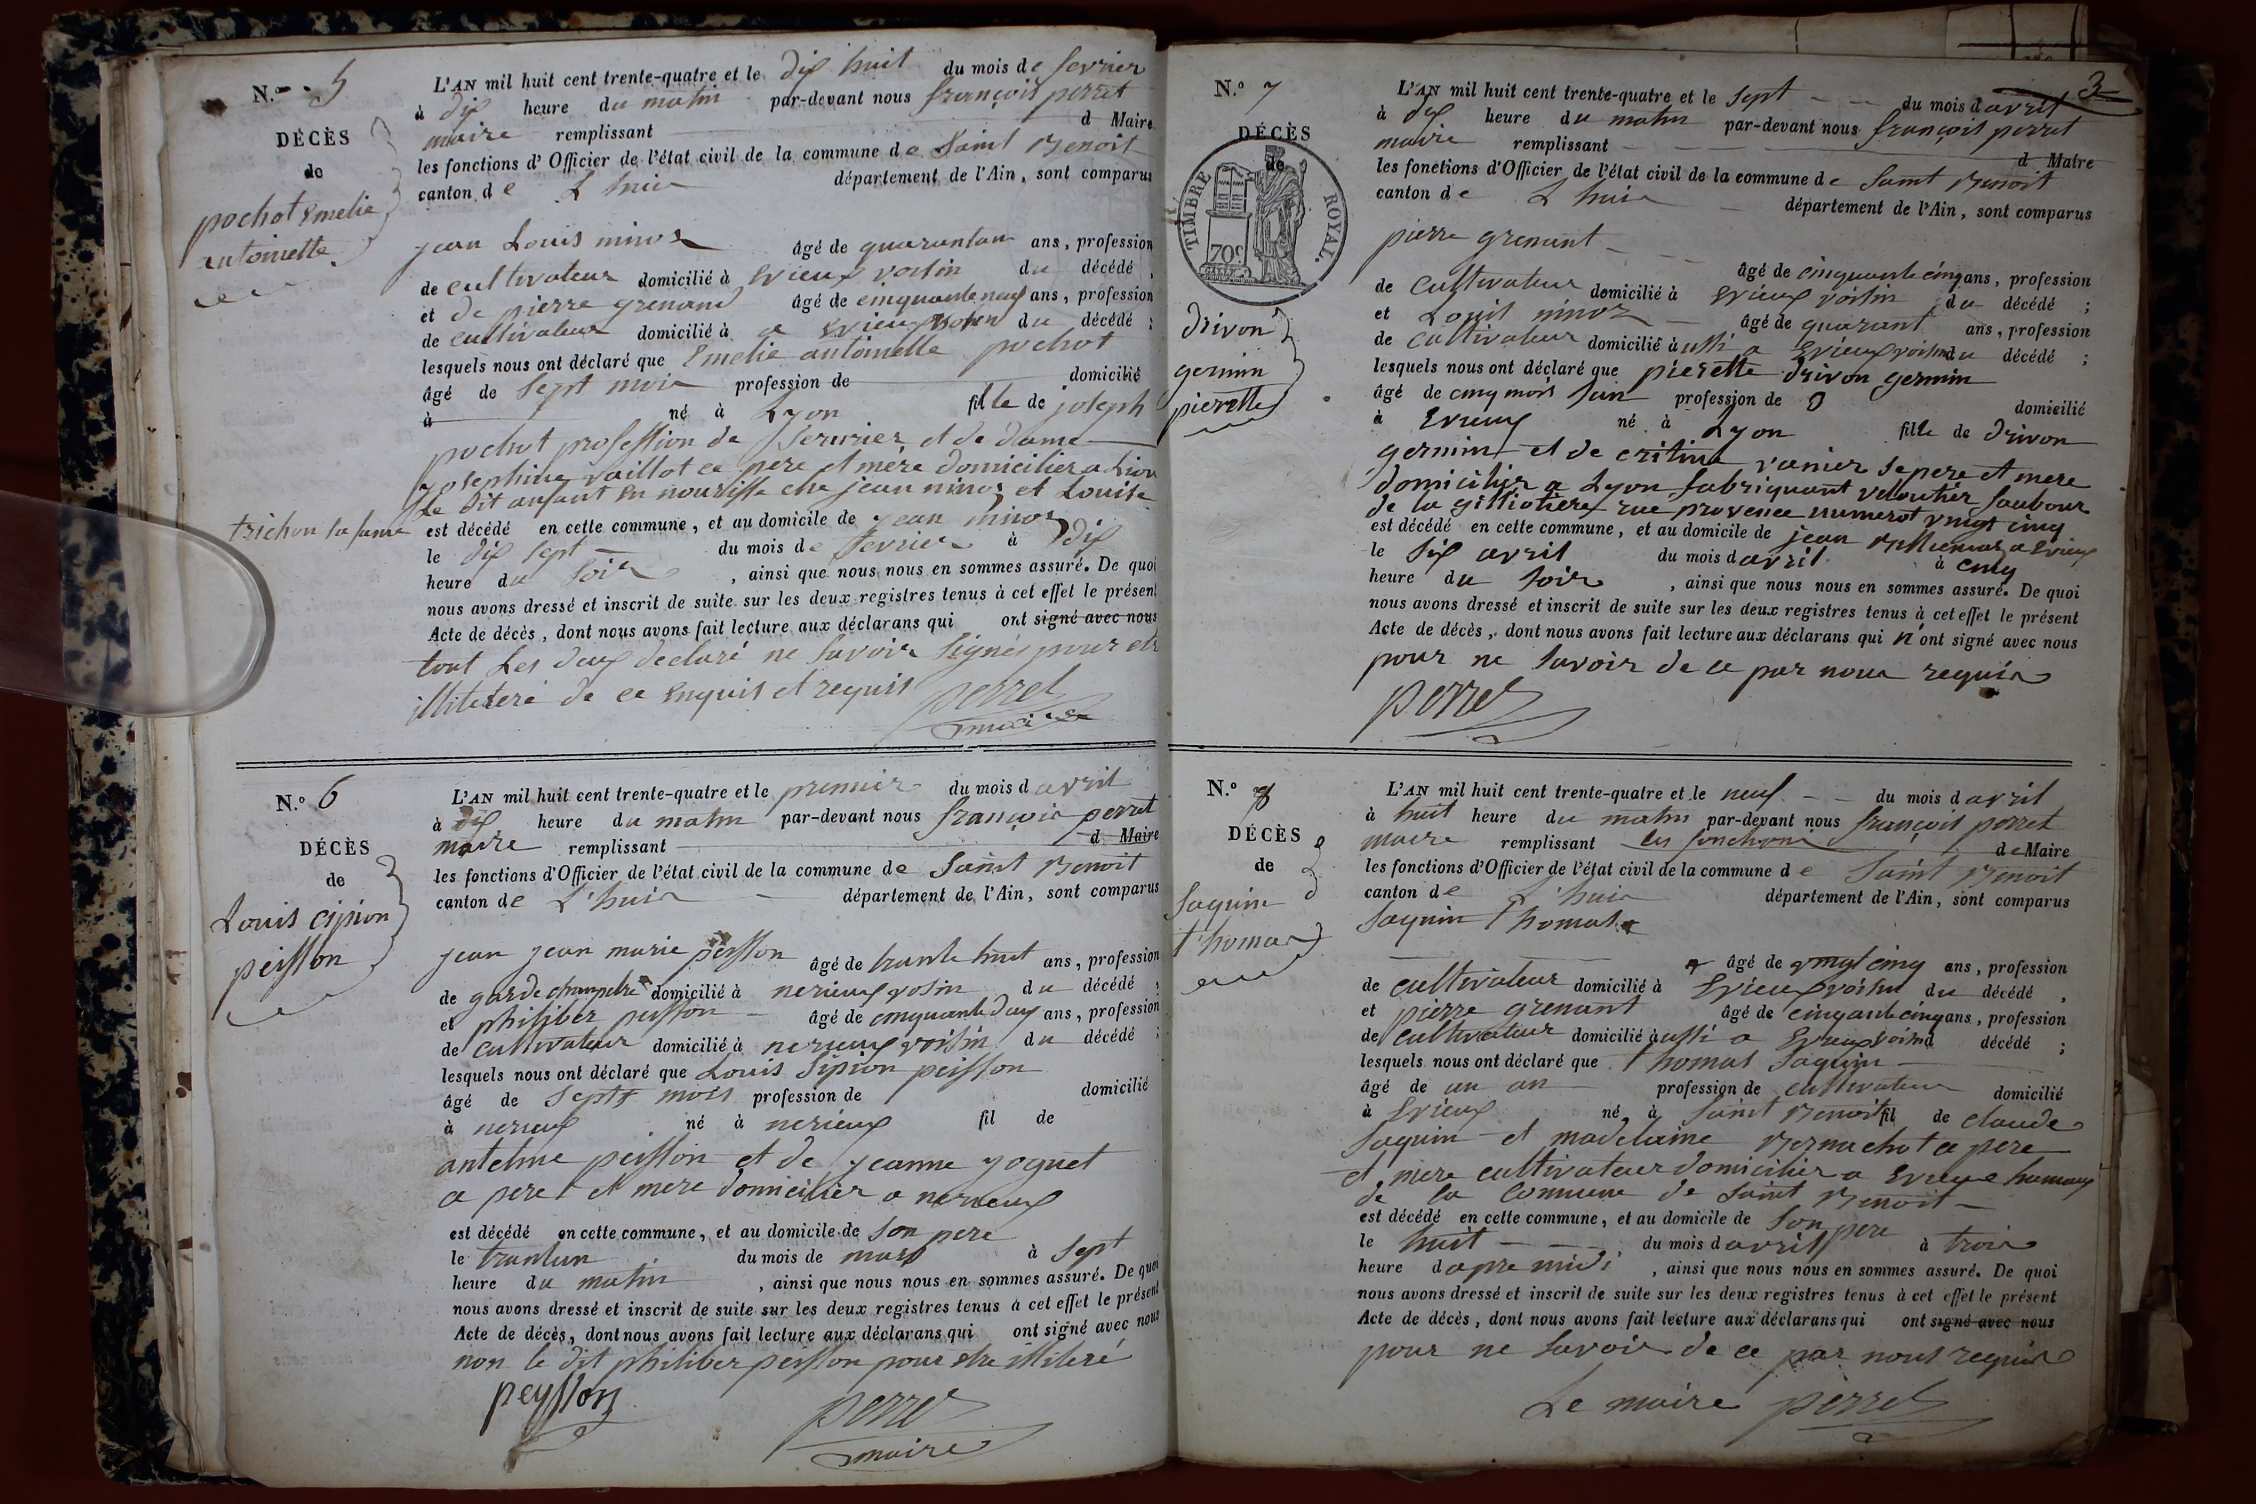 N.° 5
DÉCÈS
de
pochot Emelie
antoinette
L'AN mil huit cent trente-quatre et le dix huit du mois de fevrier
à dix heure du matin par-devant nous françois perret
maire remplissant d Maire
les fonctions d'Officier de l'état civil de la commune de Saint Benoit
canton de L'huis département de l'Ain, sont comparus
jean Louis minoz âgé de quarantun ans, profession
de cultivateur domicilié à Evieux voisin du décédé,
et de pierre grenand âgé de cinquante neuf ans, profession
de cultivateur domicilié à a Evieux voisin du décédé ;
lesquels nous ont déclaré que Emelie antoinette pochot
âgé de Sept mois profession de domicilié
à né à Lyon fille de joseph
pochot profession de Serurier et de dame
josephine vaillot ce pere et mère domicilier a Lion
Le dit anfant en nourisse che jean minoz et Louise
trichon sa fame
est décédé en cette commune, et au domicile de jean minoz
le dix sept du mois de fevrier à dix
heure du Soir, ainsi que nous nous en sommes assuré. De quoi
nous avons dressé et inscrit de suite sur les deux registres tenus à cet effet le présent
Acte de décès, dont nous avons fait lecture aux déclarans qui ont signé avec nous
tout Les deux declaré ne Savoir Signés pour etr
illiteteré de ce enquis et requis
perret
maire
N.° 6
DÉCÈS
de
Louis cipion
peisson
L'AN mil huit cent trente-quatre et le premier du mois d avril
à dix heure du matin par-devant nous françois perret
maire remplissant d Maire
les fonctions d'Officier de l'état civil de la commune de Saint Benoit
canton de L'huis département de l'Ain, sont comparus
jean jean marie peisson âgé de trante huit ans, profession
de garde champetre domicilié à nerieux vosin du décédé ;
et philiber peisson âgé de cinquante deux ans, profession
de cultivateur domicilié à nerieux voisin du décédé ;
lesquels nous ont déclaré que Louis Sipion peisson
âgé de Sept mois profession de domicilié
à nerieux né à nerieux fil de
antelme peisson et de jeanne joguet
ce pere et mere domicilier a nerieux
est décédé en cette commune, et au domicile de son pere
le trantun du mois de mars à Sept
heure du matin, ainsi que nous nous en sommes assuré. De quoi
nous avons dressé et inscrit de suite sur les deux registres tenus à cet effet le présent
Acte de décès, dont nous avons fait lecture aux déclarans qui ont signé avec nous
non le dit philiber peisson pour etre illiteré
peysson
perret
maire
3
N.° 7
DÉCÈS
de
TIMBRE ROYAL.
70c
drivon
germin
pierette
L'AN mil huit cent trente-quatre et le Sept du mois d avril
à dix heure du matin par-devant nous françois perret
maire remplissant d Maire
les fonctions d'Officier de l'état civil de la commune de Saint Benoit
canton de L'huis département de l'Ain, sont comparus
pierre grenant
âgé de cinquante cinq ans, profession
de Cultivateur domicilié à Evieux voisin du décédé ;
et Louis minoz âgé de quarant ans, profession
de Cultivateur domicilié à ussi a Evieux voisin du décédé ;
lesquels nous ont déclaré que pierette drivon germin
âgé de cinq mois profession de domicilié
à Evieux né à Lyon fille de drivon
germin et de critine vanier Se pere et mere
domicilier a Lyon fabriquant veloutier faubour
de la gilliotiere rue provence numerot vingt cinq
est décédé en cette commune, et au domicile de jean a Evieux
le Six avril du mois d avril à cinq
heure du Soir, ainsi que nous nous en sommes assuré. De quoi
nous avons dressé et inscrit de suite sur les deux registres tenus à cet effet le présent
Acte de décès, dont nous avons fait lecture aux déclarans qui n'ont signé avec nous
pour ne Savoir de ce par nous requis
perret
N.° 8
DÉCÈS
de
Saquin
thomas
L'AN mil huit cent trente-quatre et le neuf du mois d avril
à huit heure du matin par-devant nous françois perret
maire remplissant les fonctions de Maire
les fonctions d'Officier de l'état civil de la commune de Saint Benoit
canton de L'huis département de l'Ain, sont comparus
Saquin thomas
âgé de vingt cinq ans, profession
de cultivateur domicilié à Evieux voisin du décédé,
et pierre grenant âgé de cinqante cinq ans, profession
de cultivateur domicilié à ussi a Evieux voisin d décédé ;
lesquels nous ont déclaré que thomas Saquin
âgé de un an profession de cultivateur domicilié
à Evieux né à Saint Benoit fil de claude
Saquin et madelaine Bernuchot ce pere
et mere cultivateur domicilier a Evieux hameaux
de la Commune de Saint Benoit
est décédé en cette commune, et au domicile de Son pere
le huit du mois d avril à trois
heure d apre midi, ainsi que nous nous en sommes assuré. De quoi
nous avons dressé et inscrit de suite sur les deux registres tenus à cet effet le présent
Acte de décès, dont nous avons fait lecture aux déclarans qui ont signé avec nous
pour ne Savoir de ce par nous requis
Le maire perret